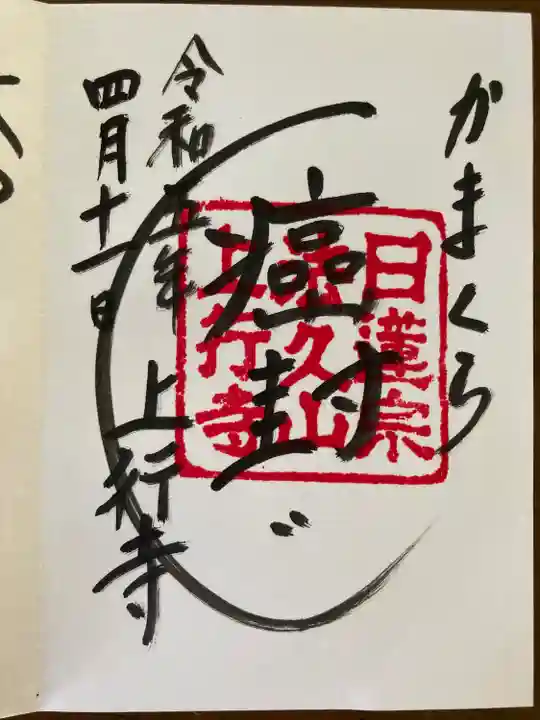 かまくら
癌封じ
日蓮宗
法久山
上行寺
令和五年
四月十一日
上行寺